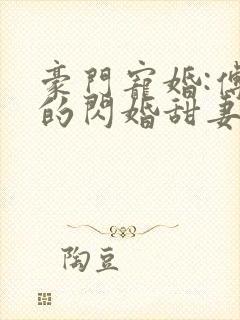 豪門寵婚:傅
的閃婚甜妻
陶豆